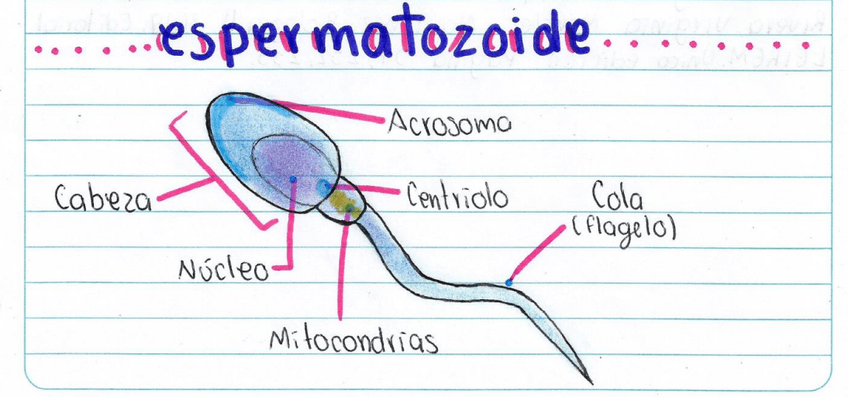 espermatozoide
Acrosoma
Cabeza
Centriolo
Cola
(flagelo)
Núcleo
Mitocondrías